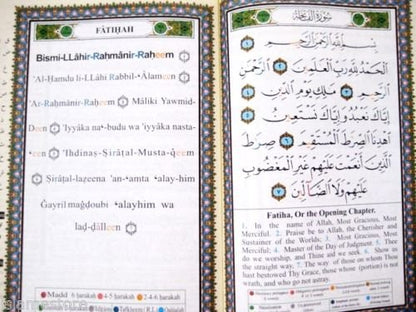 FATIHAH
Bismi-LLāhir-Rahmānir-Raheem
'Al-Ḥamdu li-LLāhi Rabbil-'Ālameen
'Ar-Raḥmānir-Raḥeem Māliki Yawmid-
Deen 'Iyyāka na-budu wa 'iyyāka nasta-
een 'Ihdinaṣ-Ṣirāṭal-Musta-qeem
Ṣirāṭal-laẓeena 'an-amta alay-him
Ġayril maġdoubi alayhim wa
laḍ-ḍālleen
Madd 6 ḥarakah 4-5 ḥarakah 2-4-6 ḥarakah
سورة الفاتحة
بِسْمِ اللَّهِ الرَّحْمَٰنِ الرَّحِيمِ ١
الْحَمْدُ لِلَّهِ رَبِّ الْعَالَمِينَ ٢ الرَّحْمَٰنِ
الرَّحِيمِ ٣ مَالِكِ يَوْمِ الدِّينِ ٤
إِيَّاكَ نَعْبُدُ وَإِيَّاكَ نَسْتَعِينُ ٥
اهْدِنَا الصِّرَاطَ الْمُسْتَقِيمَ ٦ صِرَاطَ
الَّذِينَ أَنْعَمْتَ عَلَيْهِمْ غَيْرِ الْمَغْضُوبِ
عَلَيْهِمْ وَلَا الضَّالِّينَ ٧
Fatiha, Or the Opening Chapter.
1. In the name of Allah, Most Gracious, Most
Merciful. 2. Praise be to Allah, the Cherisher and
Sustainer of the Worlds; 3. Most Gracious, Most
Merciful; 4. Master of the Day of Judgment. 5. Thee
do we worship, and Thine aid we seek. 6. Show us
the straight way, 7. The way of those on whom Thou
hast bestowed Thy Grace, those whose (portion) is not
wrath, and who go not astray.